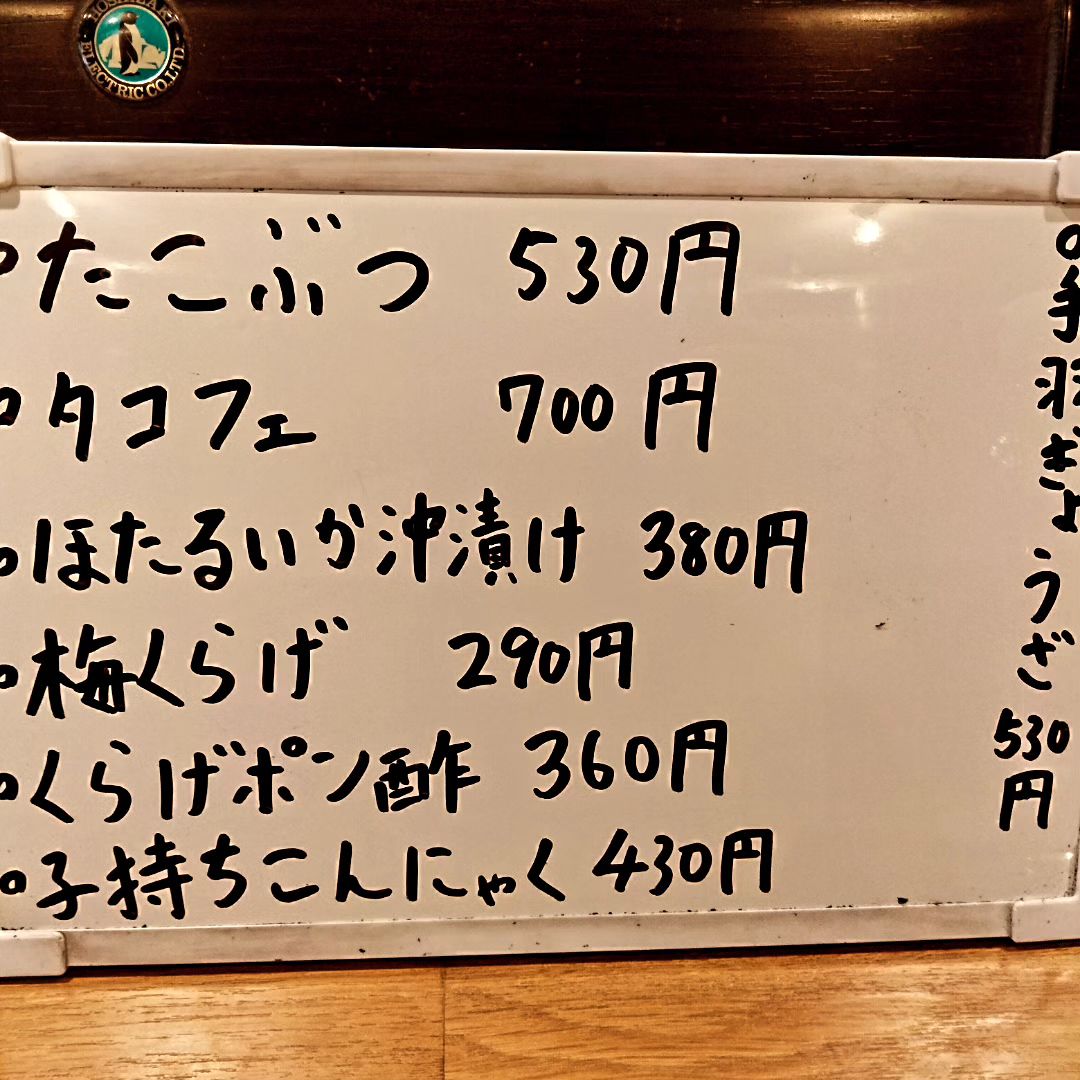 HOSHIZAKI
ELECTRIC CO.LTD.
たこぶつ 530円
タコフェ 700円
ほたるいか沖漬け 380円
梅くらげ 290円
くらげポン酢 360円
子持ちこんにゃく 430円
手羽ぎょうざ
530
円